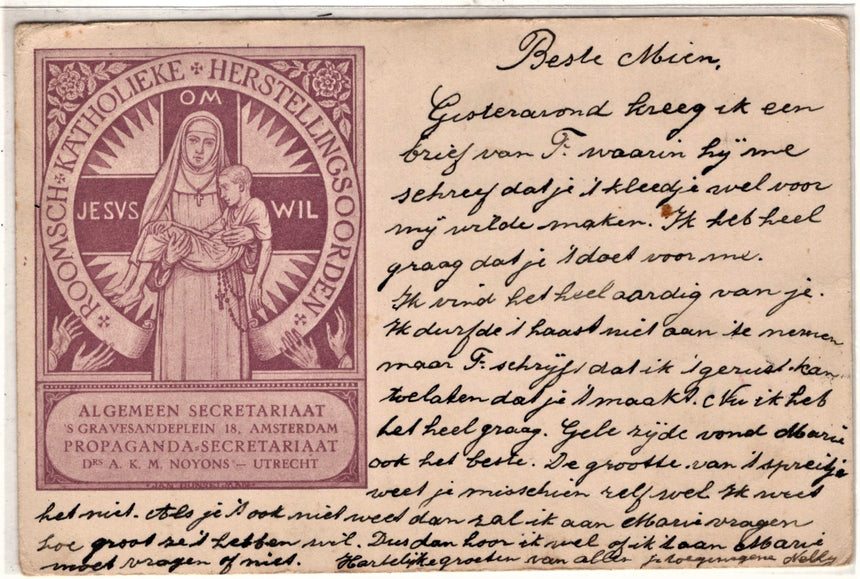 ROOMSCH KATHOLIEKE HERSTELLINGSOORDEN
OM
JESVS WIL
ALGEMEEN SECRETARIAAT
'S GRAVESANDEPLEIN 18, AMSTERDAM
PROPAGANDA-SECRETARIAAT
DRS A. K. M. NOYONS — UTRECHT
Beste Mien,
Gisteravond kreeg ik een
brief van F. waarin hij me
schreef dat je 't kleedje wel voor
mij wilde maken. Ik heb heel
graag dat je 't doet voor me.
Ik vind het heel aardig van je.
Ik durfde 't haast niet aan te nemen
maar F. schrijft dat ik 't gerust kan
toelaten dat je 't maakt. Nu ik heb
het heel graag. Gele zijde vond Marie
ook het beste. De grootte van 't spreitje
weet je misschien zelf wel. Ik weet
het niet. Als je 't ook niet weet dan zal ik aan Marie vragen
hoe groot ze 't hebben wil. Dus dan hoor ik wel of ik 't aan Marie
moet vragen of niet. Hartelijke groeten van allen je toegenegene Nelly